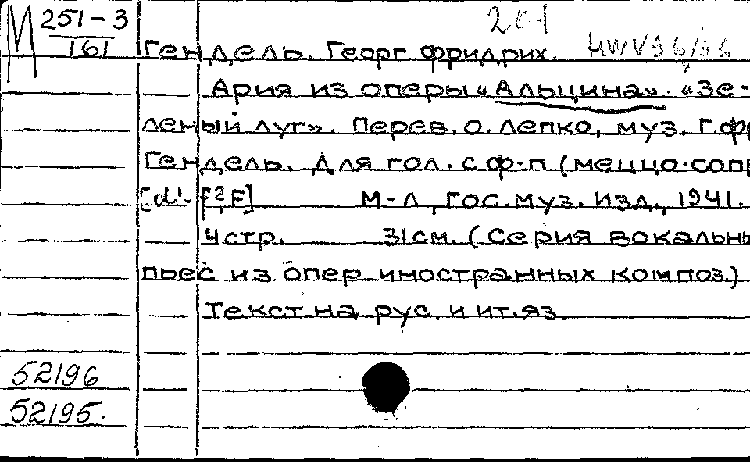 М 251-3
161
201
Гендель. Георг Фридрих. HWV
Ария из оперы «Альцина». «Зе-
леный луг». Перев. О. Лепко, муз. Г.Ф
Гендель. Для гол. с ф-п (меццо-сопр
М-Л, Гос. муз. изд., 1941.
4 стр. 31 см. (Серия вокальн
пьес из опер иностранных композ.)
Текст на рус. и ит. яз.
52196
52195.